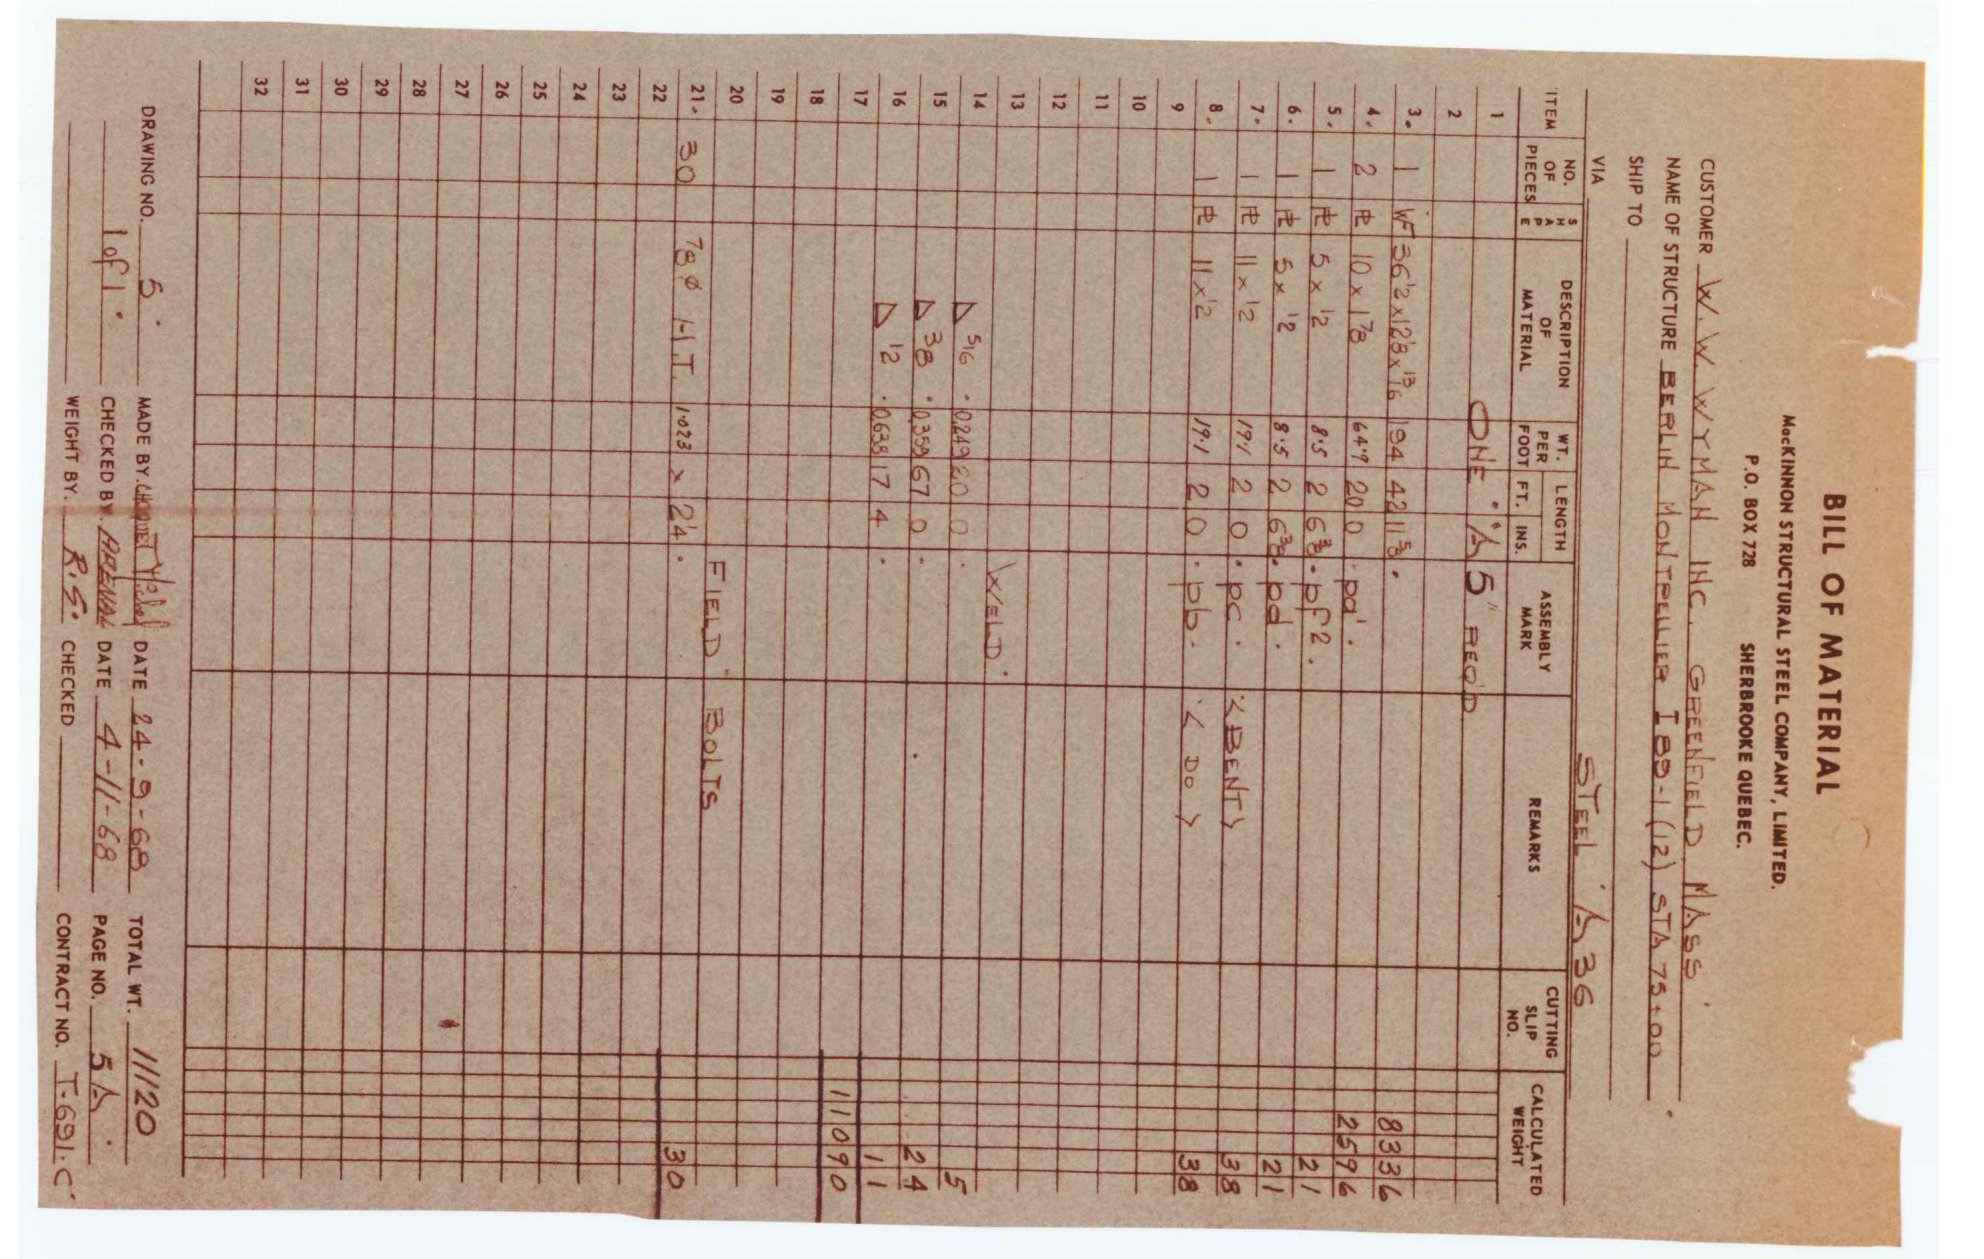 BILL OF MATERIAL
MacKINNON STRUCTURAL STEEL COMPANY, LIMITED.
P.O. BOX 728 SHERBROOKE QUEBEC.
CUSTOMER W. W. WYMAN INC. GREENFIELD MASS.
NAME OF STRUCTURE BERLIN MONTPELLIER I 89-1(12) STA 75+00
SHIP TO
VIA STEEL A36
ITEM NO. OF PIECES SHAPE DESCRIPTION OF MATERIAL WT. PER FOOT LENGTH FT. INS. ASSEMBLY MARK REMARKS CUTTING SLIP NO. CALCULATED WEIGHT
1 ONE "A5" REQ'D
2
3. 1 WF 36 1/2 x 12 1/8 x 13/16 194 42 11 5/8. 8336
4. 2 PL 10 x 1 7/8 64.9 20 0 pa'. 2596
5. 1 PL 5 x 1/2 8.5 2 6 3/8. pf2. 21
6. 1 PL 5 x 1/2 8.5 2 6 3/8. pd. 21
7. 1 PL 11 x 1/2 19.1 2 0. pc. < BENT > 38
8. 1 PL 11 x 1/2 19.1 2 0. pb. < DO > 38
9
10
11
12
13 WELD.
14 5/16 .0.249 20 0. 5
15 3/8 .0.359 67 0. 24
16 1/2 .0.638 17 4. 11
17 11090
18
19
20 FIELD BOLTS
21. 30 7/8 ø H.T. 1.023 x 2 1/4. 30
22
23
24
25
26
27
28
29
30
31
32
DRAWING NO. 5. MADE BY. DATE 24-9-68 TOTAL WT. 11120
1 of 1. CHECKED BY. ARENAL DATE 4-11-68 PAGE NO. 5A.
WEIGHT BY. R.S. CHECKED CONTRACT NO. T-691.C.